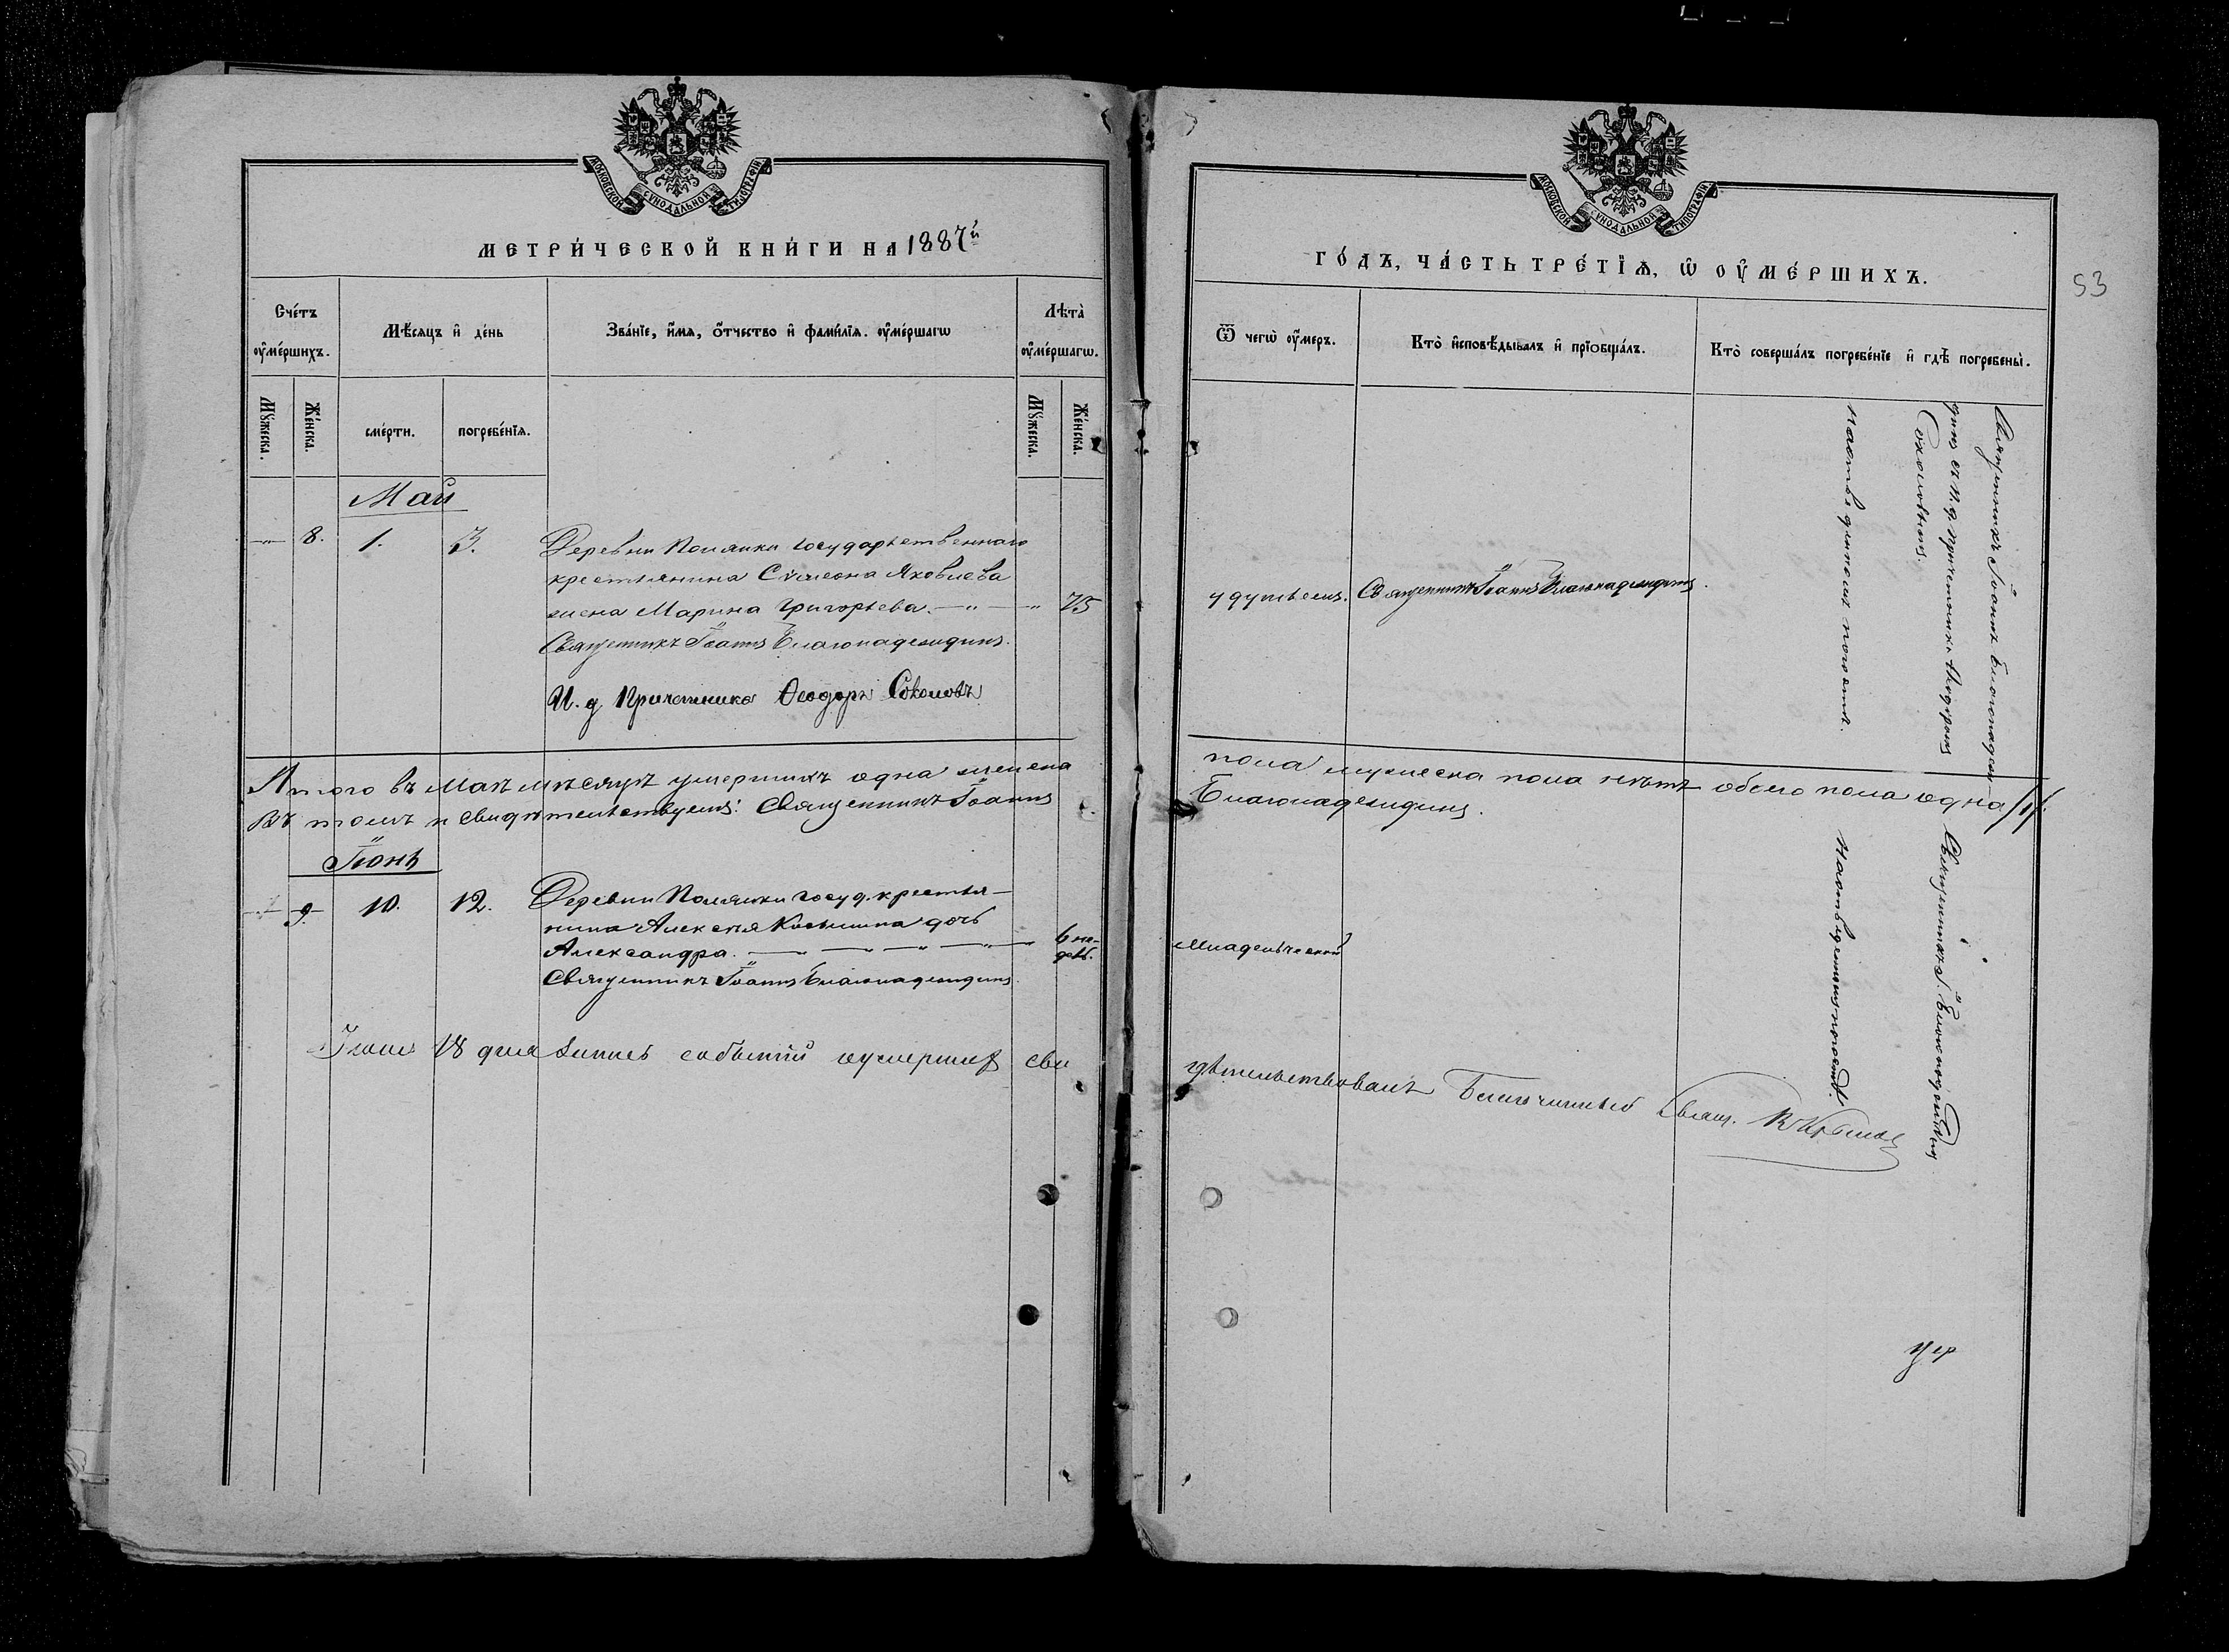 МОСКОВСКОЙ СѴНОДАЛЬНОЙ ТИПОГРАФІИ
МЕТРИ́ЧЕСКОЙ КНИ́ГИ НА 1887й
Сче́тъ оу҆ме́ршихъ.
Мѣ́сяцъ и҆ де́нь
Зва́нїе, и҆́мя, ѻ҆́тчество и҆ фами́лїя. оу҆ме́ршагѡ
Лѣта̀ оу҆ме́ршагѡ.
Мꙋ́жеска.
Же́нска.
сме́рти.
погребе́нїя.
Мꙋ́жеска.
Же́нска.
Май
8. 1. 3. Деревни Полянки государственнаго
крестьянина Сѵмеона Яковлева
жена Марина Григорьева. 75
Священникъ Іоаннъ Благонадеждинъ.
И. д. Причетника Ѳеодоръ Соколовъ
Итого въ Маѣ мѣсяцѣ умершихъ одна женска
въ томъ и свидѣтельствуемъ: Священникъ Іоаннъ
Іюнь
9. 10. 12. Деревни Полянки госуд. крестья-
нина Алексѣя дочь
Александра. 6 не-
дѣль.
Священникъ Іоаннъ Благонадеждинъ.
18 дня запись событій оумершихъ сви
МОСКОВСКОЙ СѴНОДАЛЬНОЙ ТИПОГРАФІИ
ГО́ДЪ, ЧА́СТЬ ТРЕ́ТЇѦ, Ѡ҆ ОУ҆МЕ́РШИХЪ.
53
Ѿ чегѡ̀ оу҆́меръ.
Кто̀ и҆сповѣ́дывалъ и҆ прїѡбща́лъ.
Кто̀ соверша́лъ погребе́нїе и҆ гдѣ̀ погребены̀.
удушьемъ. Священникъ Іоаннъ Благонадеждинъ.
Священникъ Іоаннъ Благонадеж
динъ съ и. д. причетника Ѳеодоромъ
Соколовымъ.
погостѣ.
пола мужеска пола нѣтъ обоего пола одна /1/.
Благонадеждинъ.
младенческой
Священникъ І. Благонадеждинъ
погостѣ.
дѣтельствовалъ Благочинный Свящ.